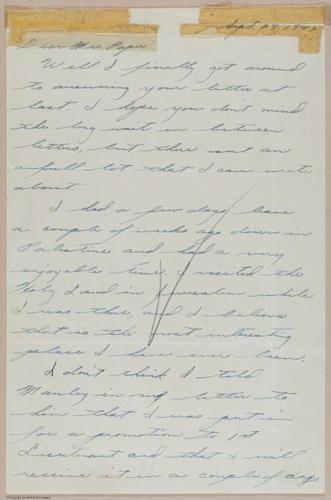 Sept. 24, 1942
Dear Mrs. Piper
Well I finally got around
to answering your letter at
last. I hope you don't mind
the long wait in between
letters, but there isn't an
awfull lot that I can write
about.
I had a few days leave
a couple of weeks ago down in
Palestine and had a very
enjoyable time. I visited the
Holy Land in Jerusalem while
I was there, and I believe
that is the most interesting
place I have ever been.
I don't think I told
Manley in my letter to
him that I was put in
for a promotion to 1st
Lieutenant and that I will
receive it in a couple of days